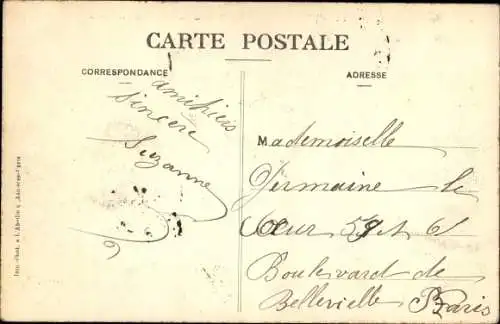 CARTE POSTALE
CORRESPONDANCE
ADRESSE
amitiers
sincere
Suzanne
Mademoiselle
Germaine le
Cœur 59 et 61
Boulevard de
Belleville Paris